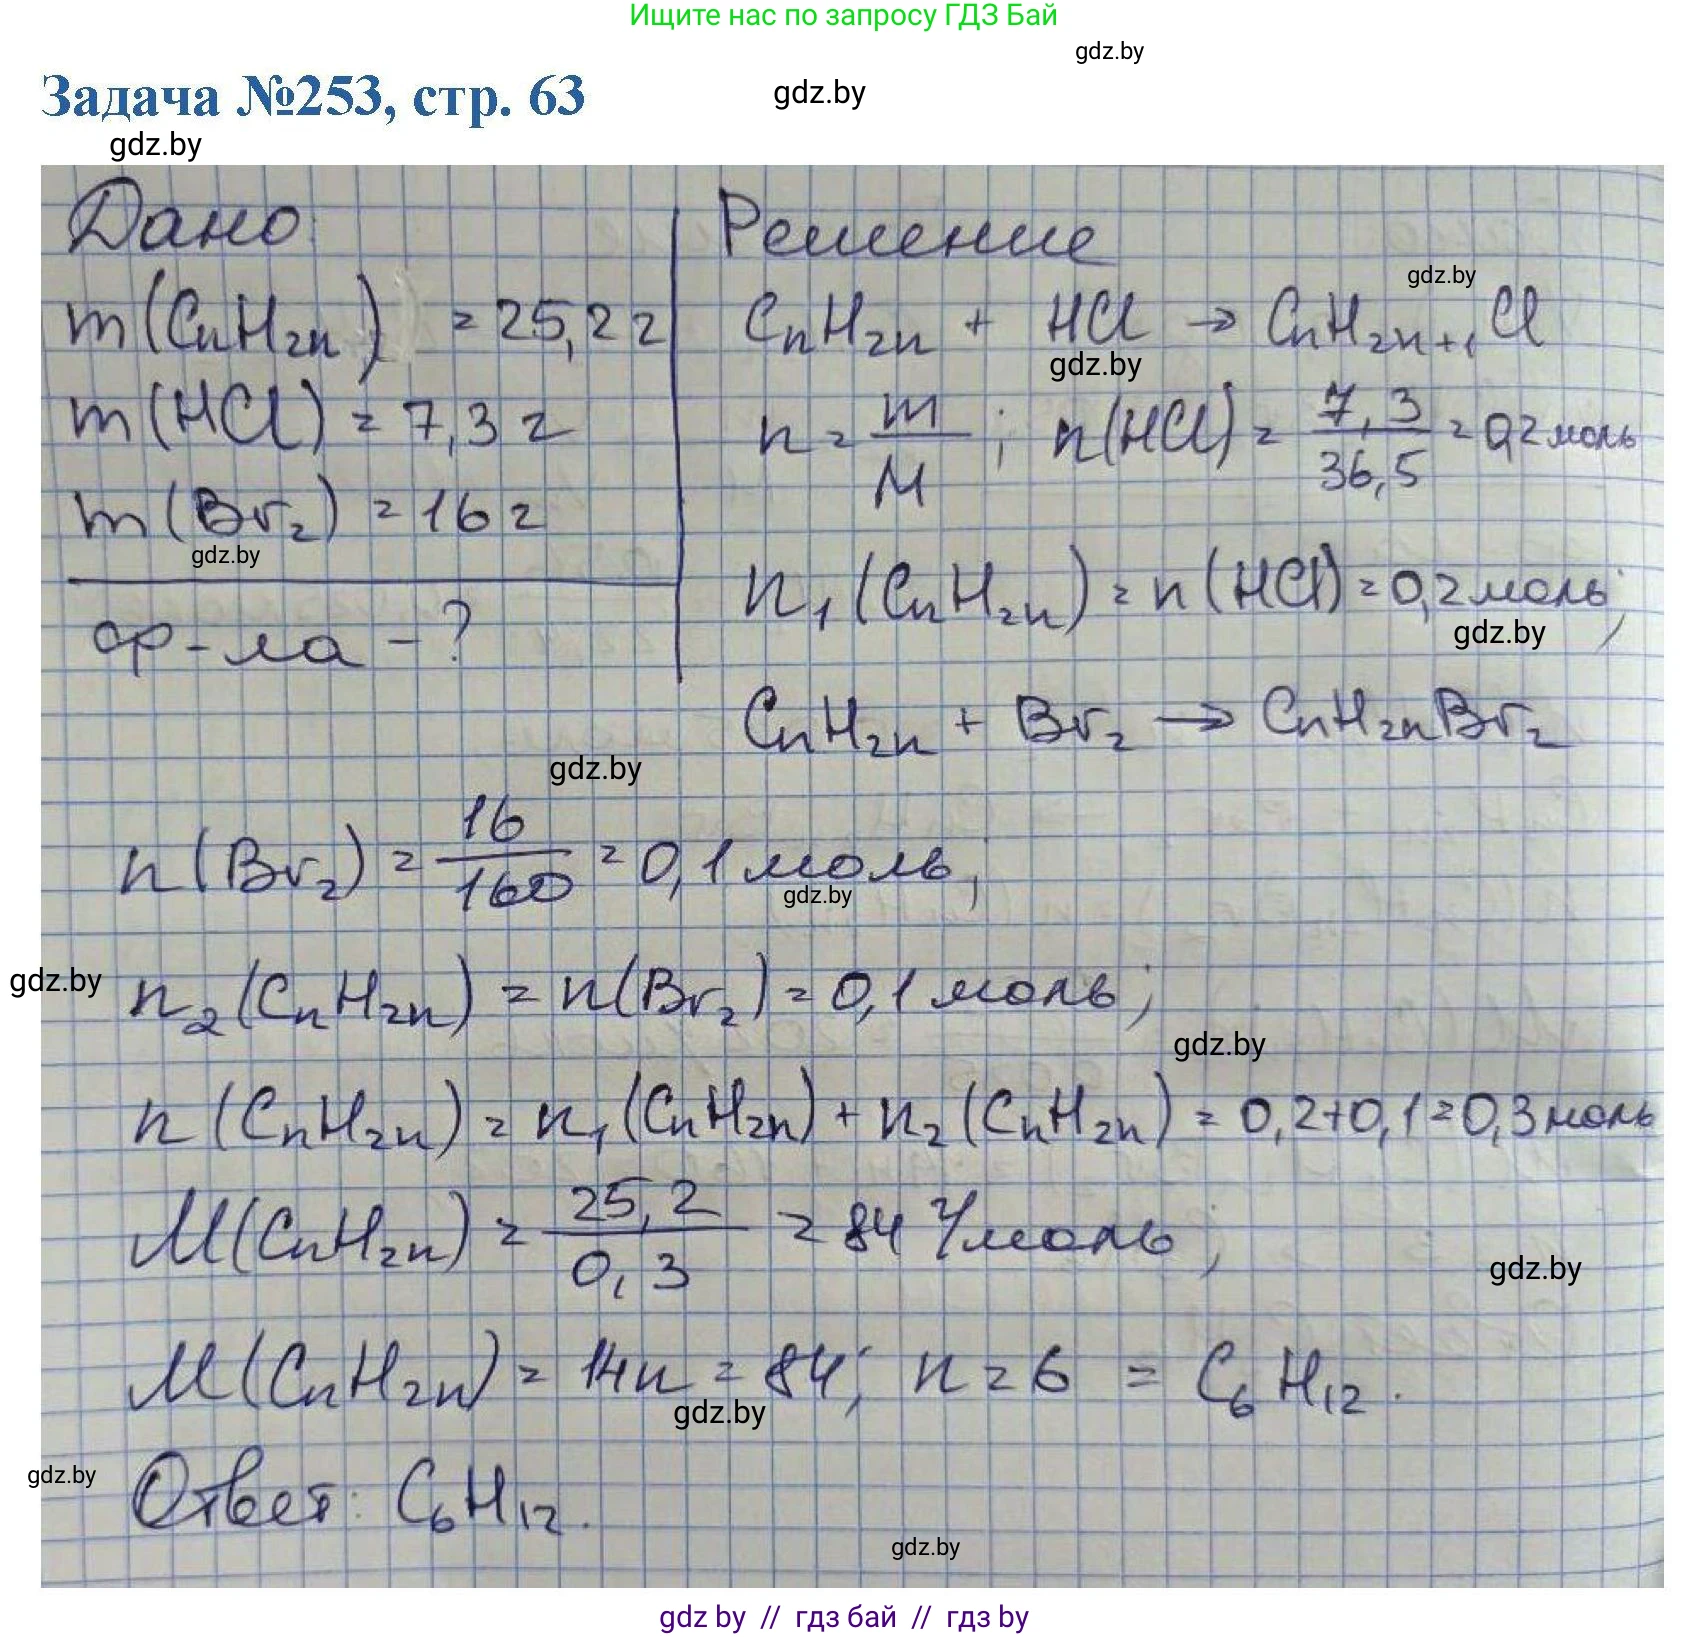 Ищите нас по запросу ГДЗ Бай
gdz.by
Задача №253, стр. 63
gdz.by
gdz.by
Дано:
Решение
m(CnH2n) = 25,2 г
CnH2n + HCl → CnH2n+1Cl
gdz.by
gdz.by
m(HCl) = 7,3 г
n = m/M ; n(HCl) = 7,3/36,5 = 0,2 моль
m(Br2) = 16 г
gdz.by
n1(CnH2n) = n(HCl) = 0,2 моль;
gdz.by
ф-ла - ?
CnH2n + Br2 → CnH2nBr2
gdz.by
n(Br2) = 16/160 = 0,1 моль;
gdz.by
gdz.by
n2(CnH2n) = n(Br2) = 0,1 моль;
gdz.by
n(CnH2n) = n1(CnH2n) + n2(CnH2n) = 0,2+0,1=0,3 моль
M(CnH2n) = 25,2/0,3 = 84 г/моль;
gdz.by
M(CnH2n) = 14n = 84; n = 6 = C6H12.
gdz.by
gdz.by
Ответ: C6H12.
gdz.by
gdz by // гдз бай // гдз by